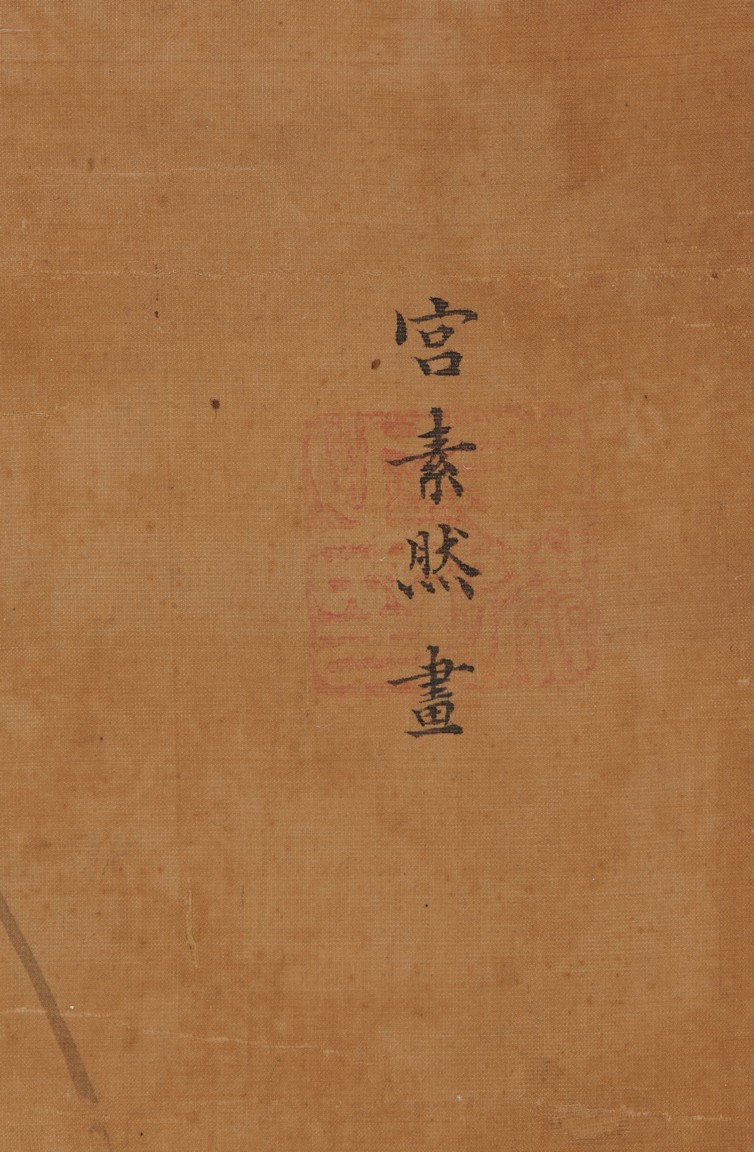 宮素然畫